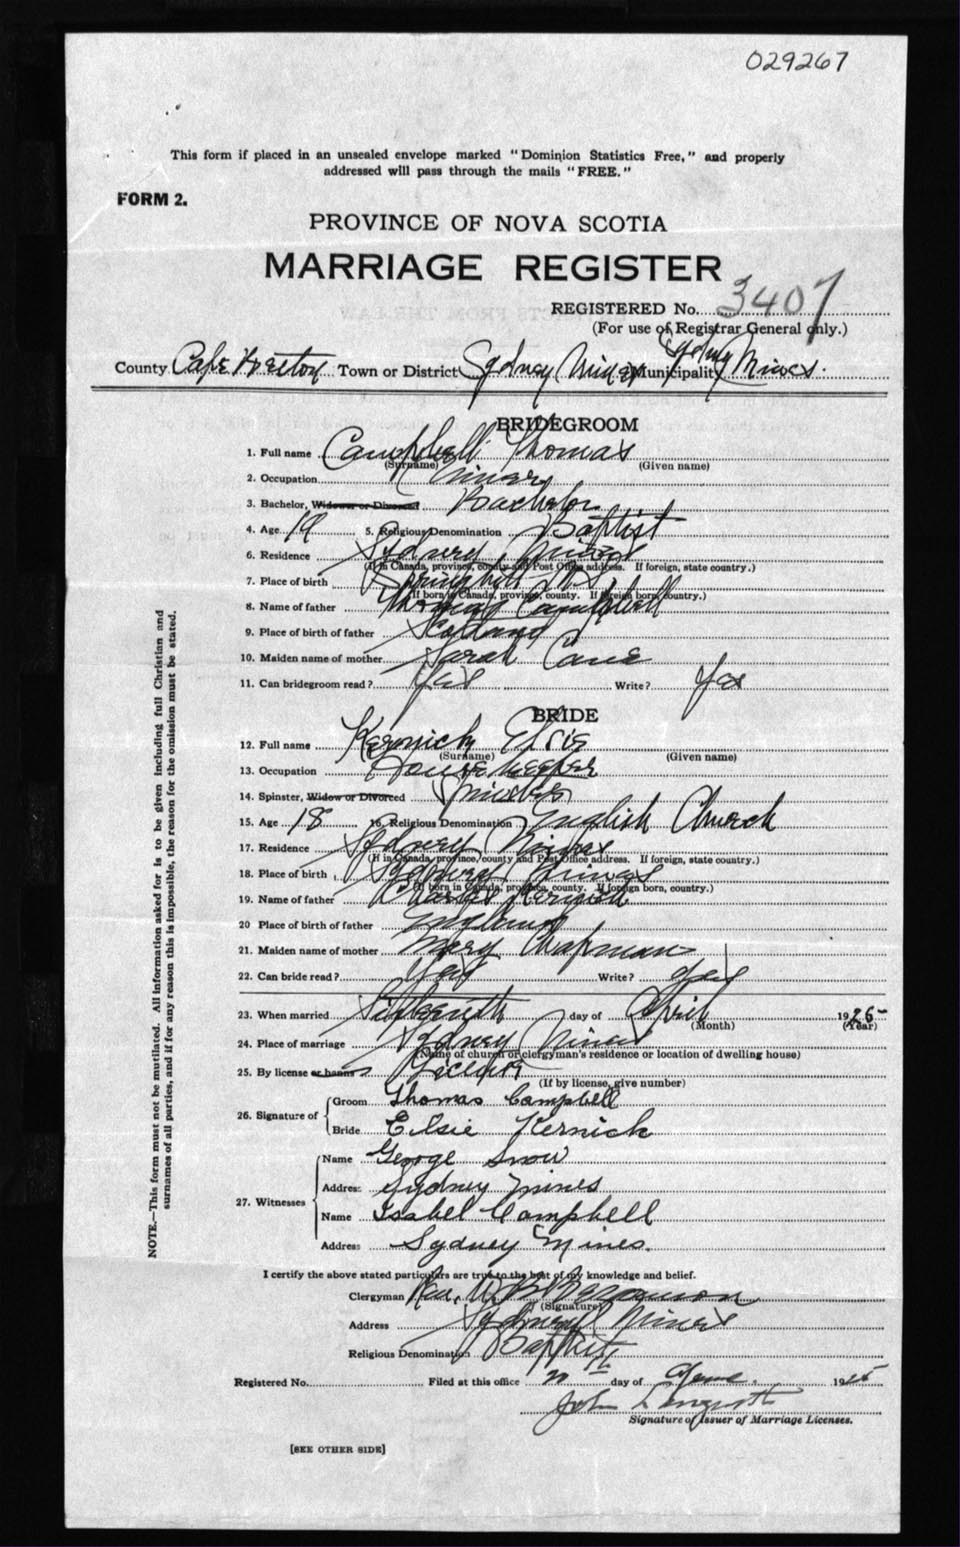 029267
This form if placed in an unsealed envelope marked "Dominion Statistics Free," and properly
addressed will pass through the mails "FREE."
FORM 2.
PROVINCE OF NOVA SCOTIA
MARRIAGE REGISTER
REGISTERED No. 3407
(For use of Registrar General only.)
County Cape Breton Town or District Sydney Mines Municipality Sydney Mines.
BRIDEGROOM
1. Full name Campbell Thomas
(Surname) (Given name)
2. Occupation Miner
3. Bachelor, Widower or Divorced Bachelor
4. Age 19 5. Religious Denomination Baptist
6. Residence Sydney Mines
(If in Canada, province, county and Post Office address. If foreign, state country.)
7. Place of birth Springhill N S
(If born in Canada, province, county. If foreign born, country.)
8. Name of father Thomas Campbell
9. Place of birth of father Scotland
10. Maiden name of mother Sarah
11. Can bridegroom read? Yes Write? Yes
BRIDE
12. Full name Kernick Elsie
(Surname) (Given name)
13. Occupation House keeper
14. Spinster, Widow or Divorced Spinster
15. Age 18 16. Religious Denomination English Church
17. Residence Sydney Mines
(If in Canada, province, county and Post Office address. If foreign, state country.)
18. Place of birth Sydney Mines
(If born in Canada, province, county. If foreign born, country.)
19. Name of father Charles Kernick
20 Place of birth of father England
21. Maiden name of mother Mary Chapman
22. Can bride read? Yes Write? Yes
23. When married Sixteenth day of April 1925
(Month) (Year)
24. Place of marriage Sydney Mines
(Name of church or clergyman's residence or location of dwelling house)
25. By license or banns License
(If by license, give number)
26. Signature of
Groom Thomas Campbell
Bride Elsie Kernick
27. Witnesses
Name George Snow
Address Sydney Mines
Name Isabel Campbell
Address Sydney Mines.
I certify the above stated particulars are true to the best of my knowledge and belief.
Clergyman Rev. W. B.
(Signature)
Address Sydney Mines
Religious Denomination Baptist
Registered No. Filed at this office 20th day of 1925
John
Signature of Issuer of Marriage Licenses.
[SEE OTHER SIDE]
NOTE.—This form must not be mutilated. All information asked for is to be given including full Christian and
surnames of all parties, and if for any reason this is impossible, the reason for the omission must be stated.